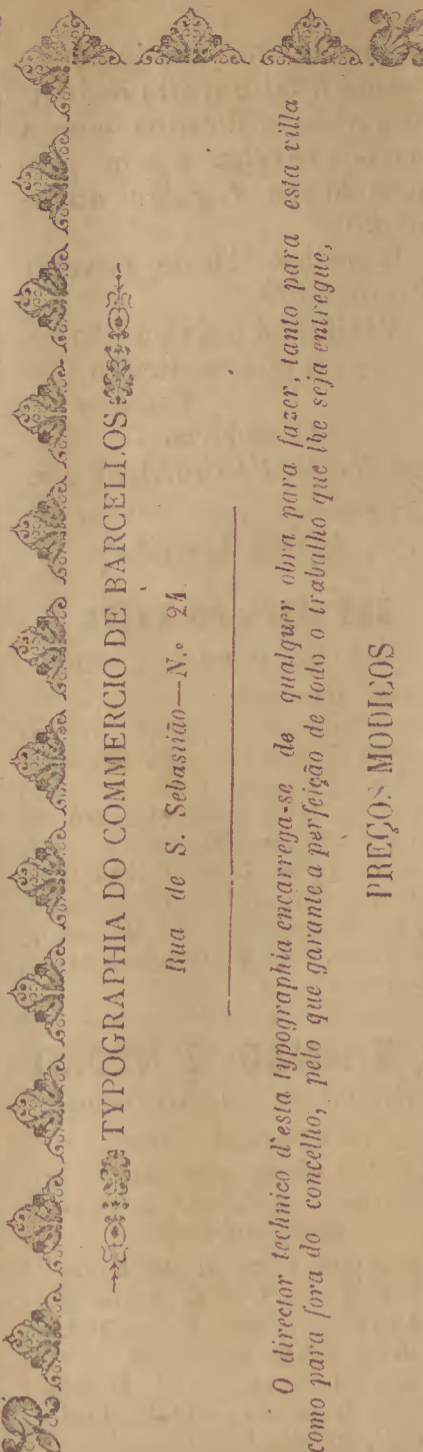 TYPOGRAPHIA DO COMMERCIO DE BARCELLOS
Rua de S. Sebastião—N.º 24
O director technico d'esta typographia encarrega-se de qualquer obra para fazer, tanto para esta villa
como para fora do concelho, pelo que garante a perfeição de todo o trabalho que lhe seja entregue,
PREÇOS MODICOS